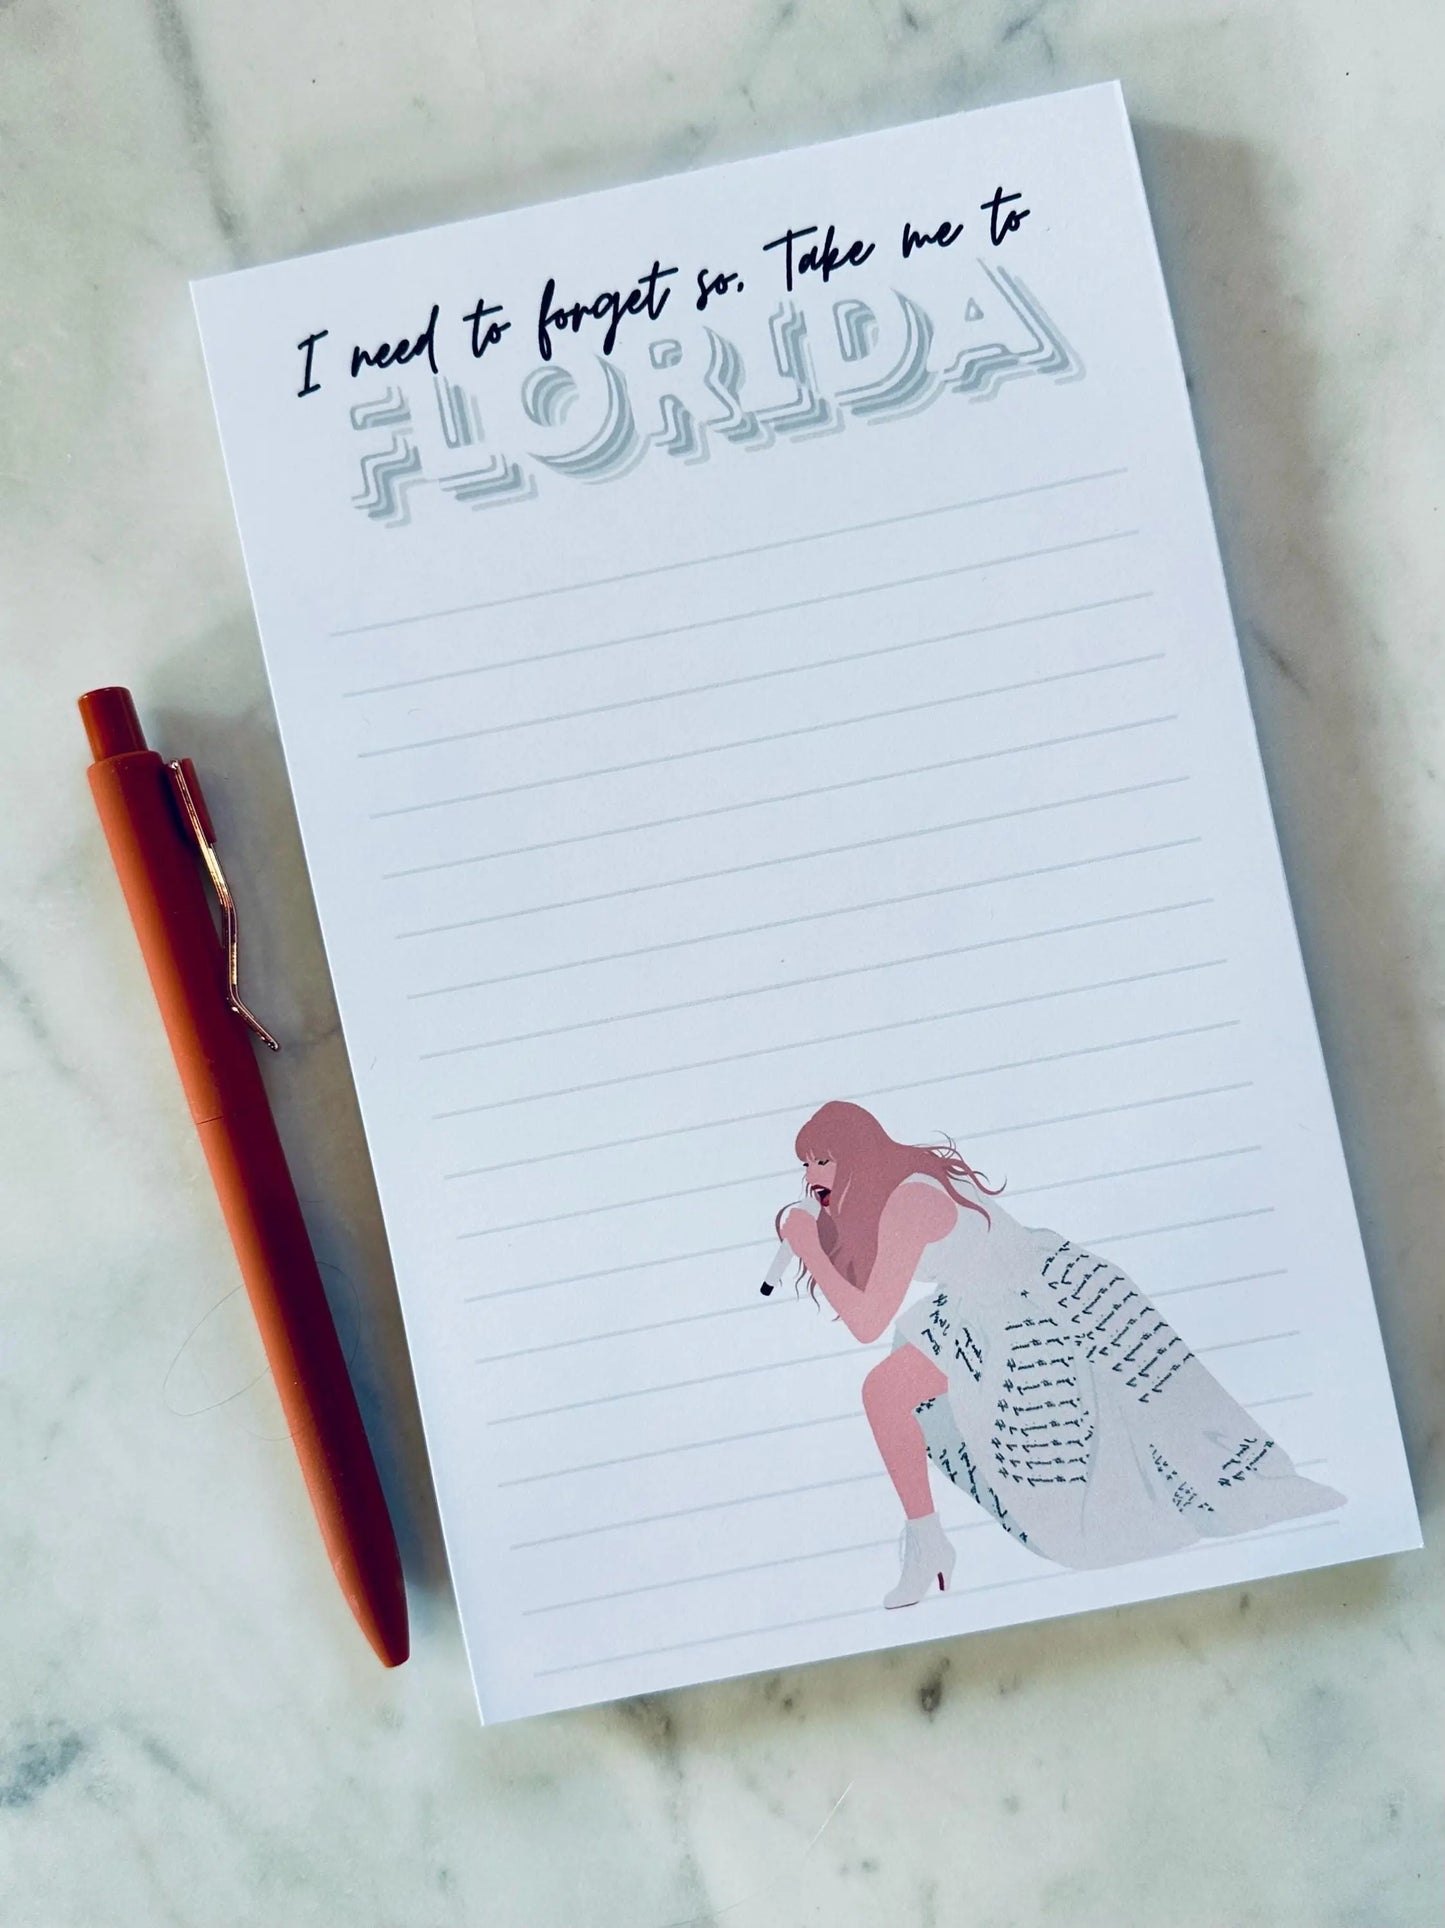 I need to forget so. Take me to
FLORIDA